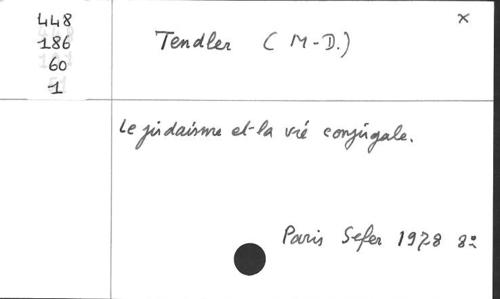 448
186
60
1
Tendler (M-D.)
x
Le judaïsme et la vie conjugale.
Paris Sefer 1978 8º